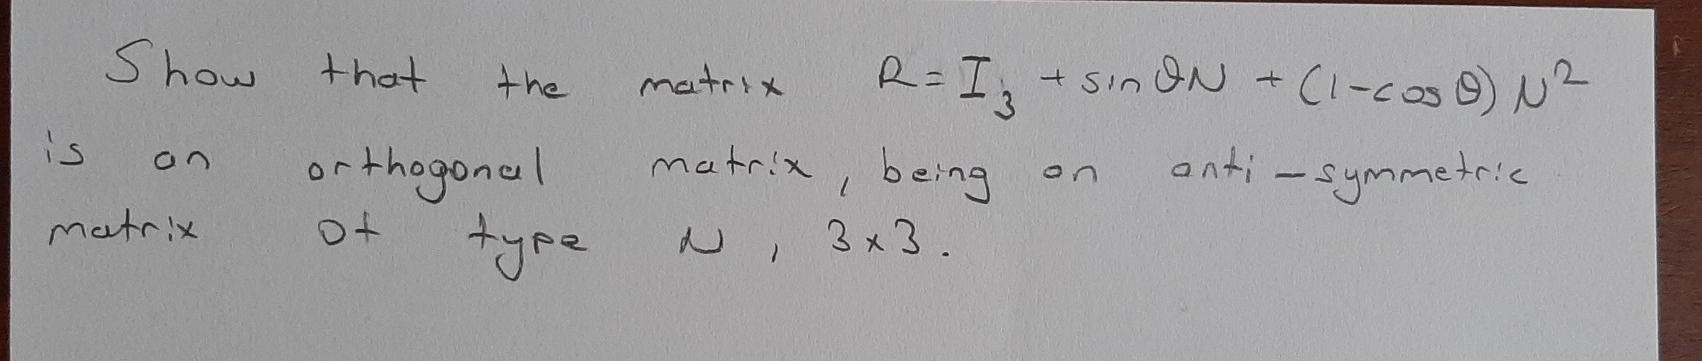 Show that the matrix R = I₃ + sinθN + (1-cosθ) N²
is an orthogonal matrix, being an anti-symmetric
matrix of type N, 3x3.